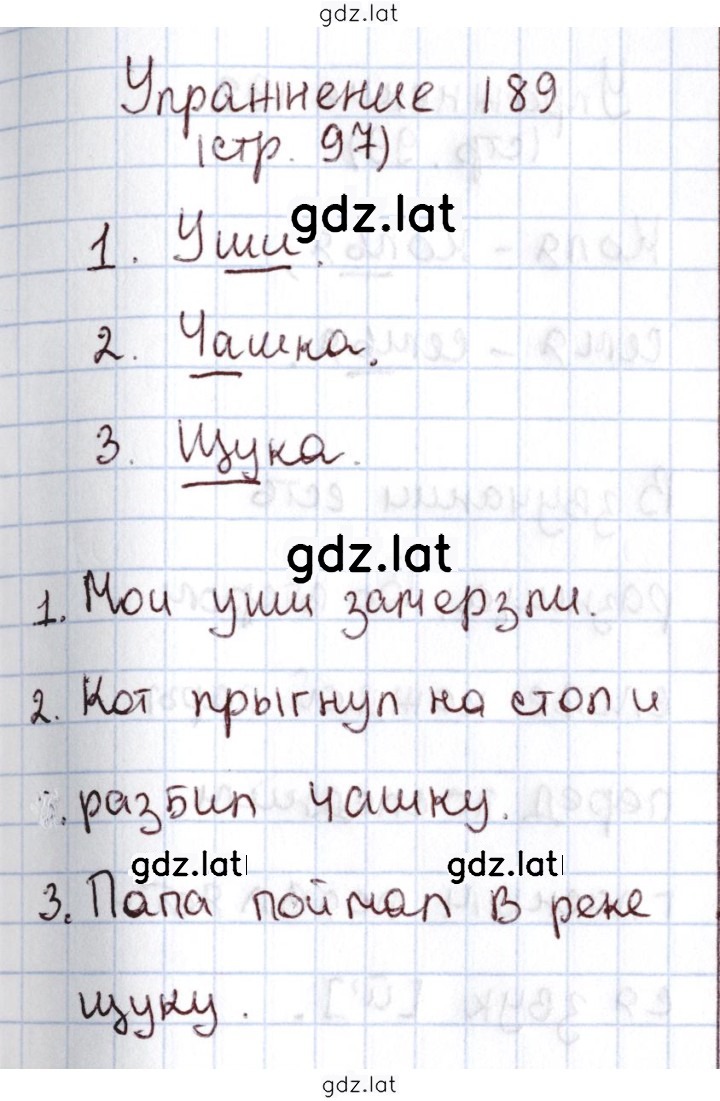 gdz.lat
Упражнение 189
(стр. 97)
gdz.lat
1. Уши.
2. Чашка.
3. Щука.
gdz.lat
1. Мои уши замерзли.
2. Кот прыгнул на стол и
разбил чашку.
gdz.lat gdz.lat
3. Папа поймал в реке
щуку.
gdz.lat